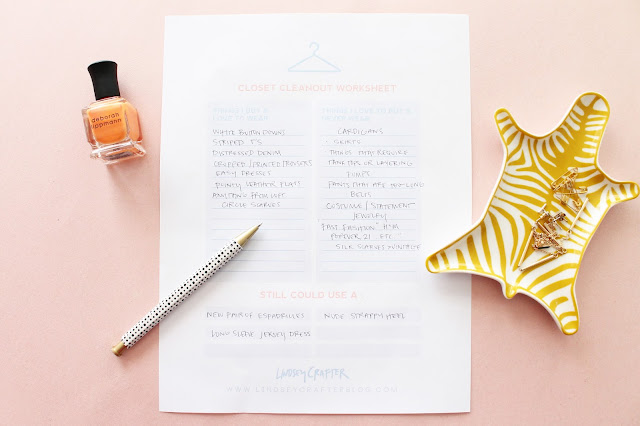 CLOSET CLEANOUT WORKSHEET
THINGS I BUY &
LOVE TO WEAR
WHITE BUTTON DOWNS
STRIPED T'S
DISTRESSED DENIM
CROPPED / PRINTED / TROUSERS
EASY DRESSES
POINTY LEATHER FLATS
ANYTHING FROM LOFT
CIRCLE SCARVES
THINGS I LOVE TO BUY &
NEVER WEAR
CARDIGANS
SKIRTS
THINGS THAT REQUIRE
TANK TOPS OR LAYERING
PANTS THAT ARE TOO LONG
BELTS
COSTUME / STATEMENT
JEWELRY
FAST FASHION" H+M
FOREVER 21 ETC
SILK SCARVES
STILL COULD USE A
NEW PAIR OF ESPADRILLES
NUDE STRAPPY HEEL
LONG SLEEVE JERSEY DRESS
LINDSEY CRAFTER
WWW.LINDSEYCRAFTERBLOG.COM
deborah
lippmann